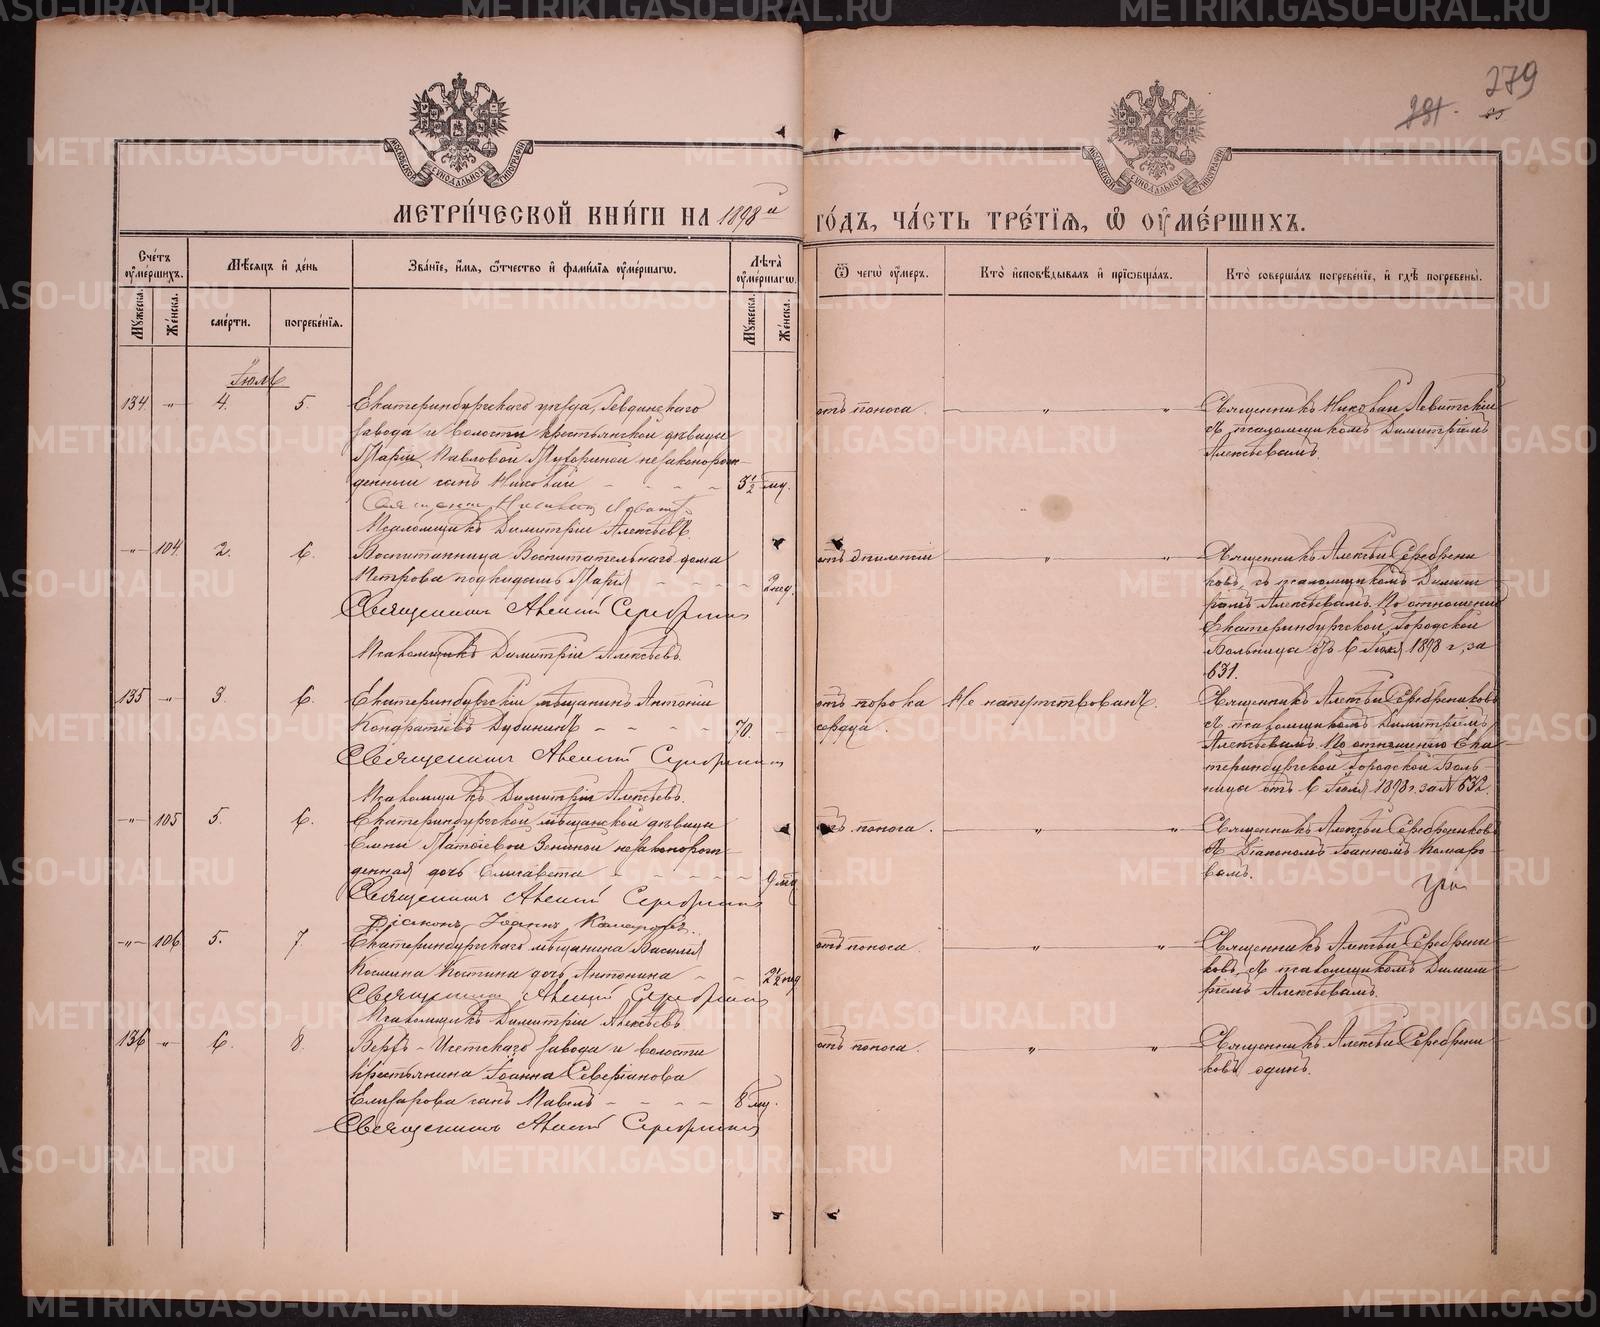 279
МЕТРИ́ЧЕСКОЙ КНИ́ГИ НА 1898й ГО́ДЪ, ЧА́СТЬ ТРЕ́ТІЯ, Ѡ ОУМЕ́РШИХЪ.
Сче́тъ оуме́ршихъ.
Мѣсяцъ и де́нь
Зва́ніе, и́мя, ѻ́тчество и фами́лія оуме́ршагѡ.
Лѣта̀ оуме́ршагѡ.
Ѿ чегѡ̀ оу́меръ.
Кто̀ и҆сповѣ́дывалъ и҆ приѻбща́лъ.
Кто̀ соверша́лъ погребе́ніе, и҆ гдѣ̀ погребены̀.
Мꙋ́жеска.
Же́нска.
сме́рти.
погребе́нія.
Мꙋ́жеска.
Же́нска.
Іюль
134 -"- 4. 5. Екатеринбургскаго уѣзда, Ревдинскаго
завода и волости крестьянской дѣвицы
Маріи Павловой незаконорож-
денный сынъ Николай 3½ мц.
Псаломщикъ Димитрій Алексѣевъ.
отъ поноса. " "
Священникъ Николай Левитскій
съ псаломщикомъ Димитріемъ
Алексѣевымъ.
-"- 104 2. 6. Воспитанница Воспитательнаго дома
Петрова подкидышъ Марія 2 нед.
Священникъ Алексій Серебрениковъ
Псаломщикъ Димитрій Алексѣевъ.
отъ эпилепсіи " "
Священникъ Алексѣй Серебрени-
ковъ, съ псаломщикомъ Димит-
ріемъ Алексѣевымъ. По отношенію
Екатеринбургской Городской
Больницы отъ 6 Іюля 1898 г, за
631.
135 -"- 3. 6. Екатеринбургскій мѣщанинъ Антоній
Кондратіевъ Дубининъ 70.
Священникъ Алексій Серебрениковъ
Псаломщикъ Димитрій Алексѣевъ.
отъ порока
сердца.
Не напутствованъ.
Священникъ Алексѣй Серебрениковъ
съ псаломщикомъ Димитріемъ
Алексѣевымъ. По отношенію Ека-
теринбургской Городской Боль-
ницы отъ 6 Іюля 1898 г. за № 632.
-"- 105 5. 6. Екатеринбургской мѣщанской дѣвицы
Елены Матѳіевой Зениной незаконорож-
денная дочь Елисавета 9 мц
Священникъ Алексій Серебрениковъ
Діаконъ Іоаннъ Комаровъ.
отъ поноса. " "
Священникъ Алексѣй Серебрениковъ
съ Діакономъ Іоанномъ Комаро-
вымъ.
-"- 106 5. 7. Екатеринбургскаго мѣщанина Василія
Космина Костина дочь Антонина 2½ нед
Священникъ Алексій Серебрениковъ
Псаломщикъ Димитрій Алексѣевъ
отъ поноса. " "
Священникъ Алексѣй Серебрени-
ковъ съ псаломщикомъ Димит-
ріемъ Алексѣевымъ.
136 -"- 6. 8. Верхъ-Исетскаго завода и волости
крестьянина Іоанна Северіанова
Елизарова сынъ Павелъ 8 мц.
Священникъ Алексій Серебрениковъ
отъ поноса. " "
Священникъ Алексѣй Серебрени-
ковъ одинъ.
METRIKI.GASO-URAL.RU